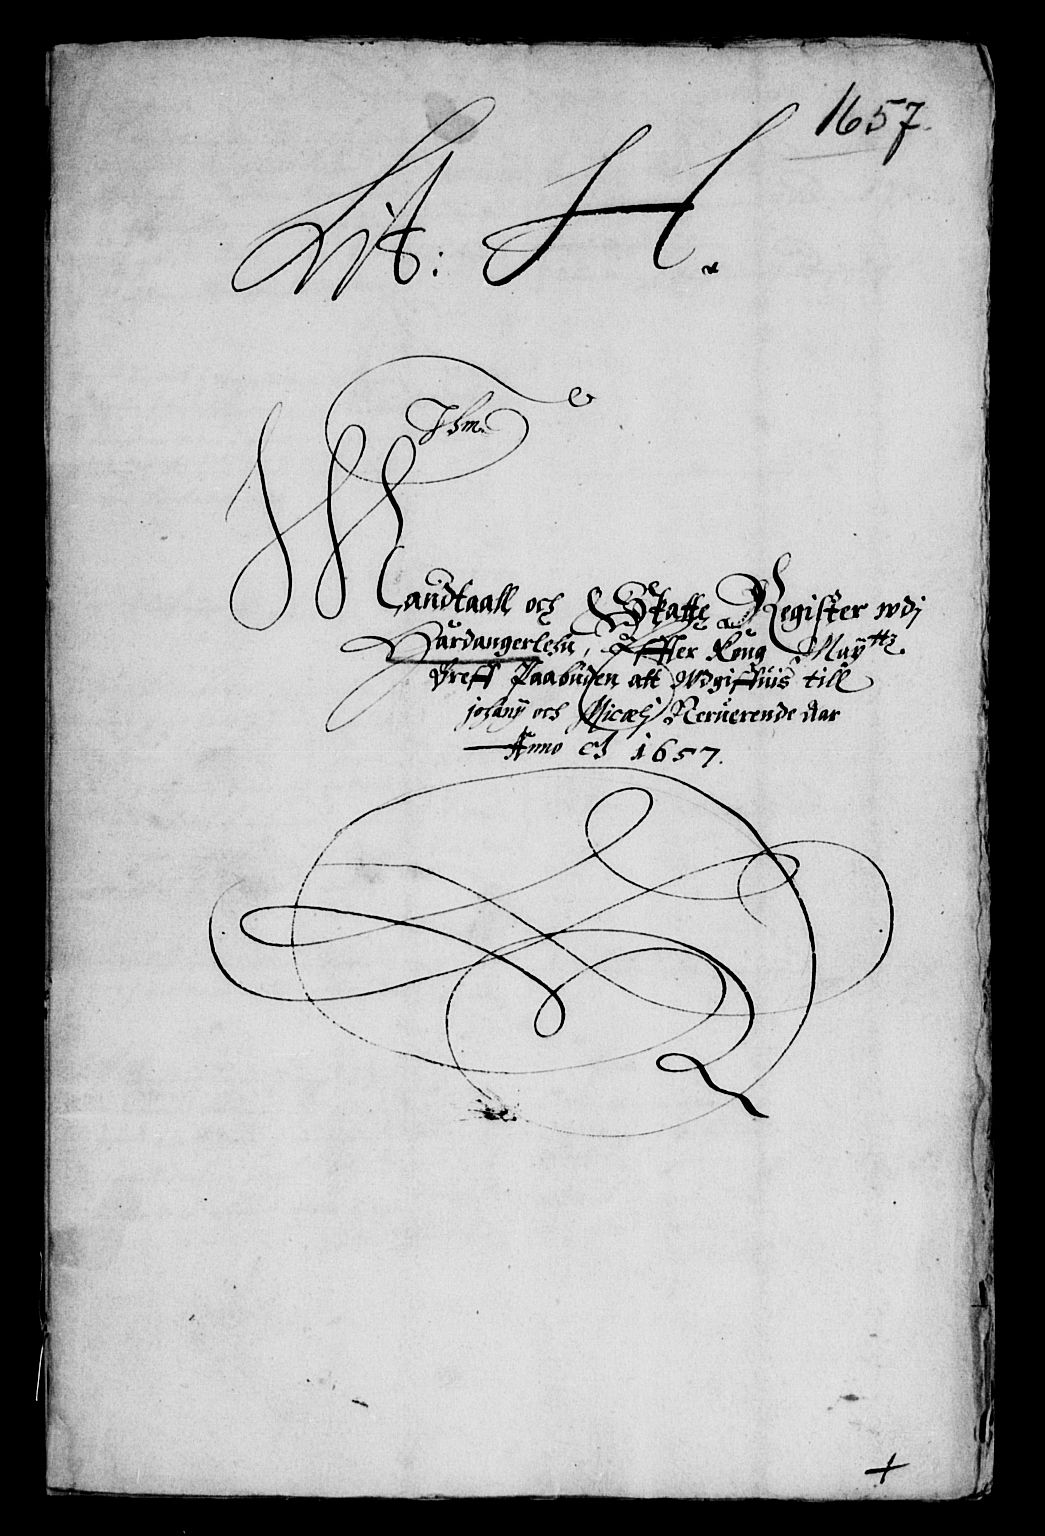 1657.
Lit: H.
Ihm.
Mandtaall och Skatte Register wdj
Hardangerlehn, Effter Kong May^ttz
Breff Paabuden att Wdgiffuis till
johanj och Micælj Neruerende Aar
Anno et 1657.
+